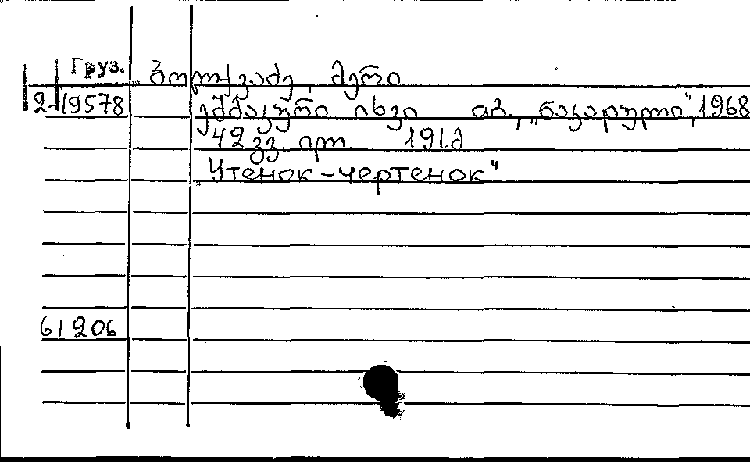 Груз. ბოლქვაძე, მერი
2-19578 ეშმაკური იხვი თბ., „ნაკადული", 1968
42 გვ. ილ. 19 სმ
Утенок-чертенок"
61206